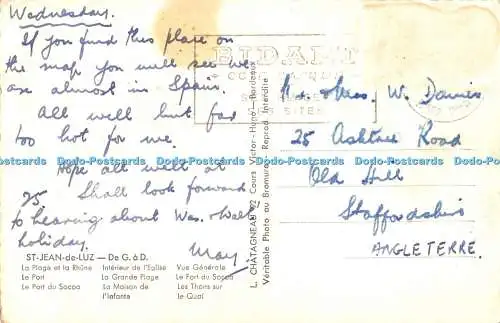 Wednesday.
If you find this place on
the map you will see we
are almost in Spain.
All well but far
too hot for me.
Hope all well at
25. Shall look forward
to hearing about Wes. & Walt
holiday.
May
ST-JEAN-de-LUZ — De G. à D.
La Plage et la Rhûne
Le Port
Le Port de Socoa
Intérieur de l'Eglise
La Grande Plage
La Maison de
l'Infante
Vue Générale
Le Fort du Socoa
Les Thons sur
le Quai
L. CHATAGNEAU 92 Cours Victor-Hugo — Bordeaux
Véritable Photo au Bromure - Reprod Interdite
BIDART
Mr & Mrs. W. Davies
25 Ashtree Road
Old Hill
Staffordshire
ANGLETERRE.
Dodo-Postcards Dodo-Postcards Dodo-Postcards Dodo-Postcards